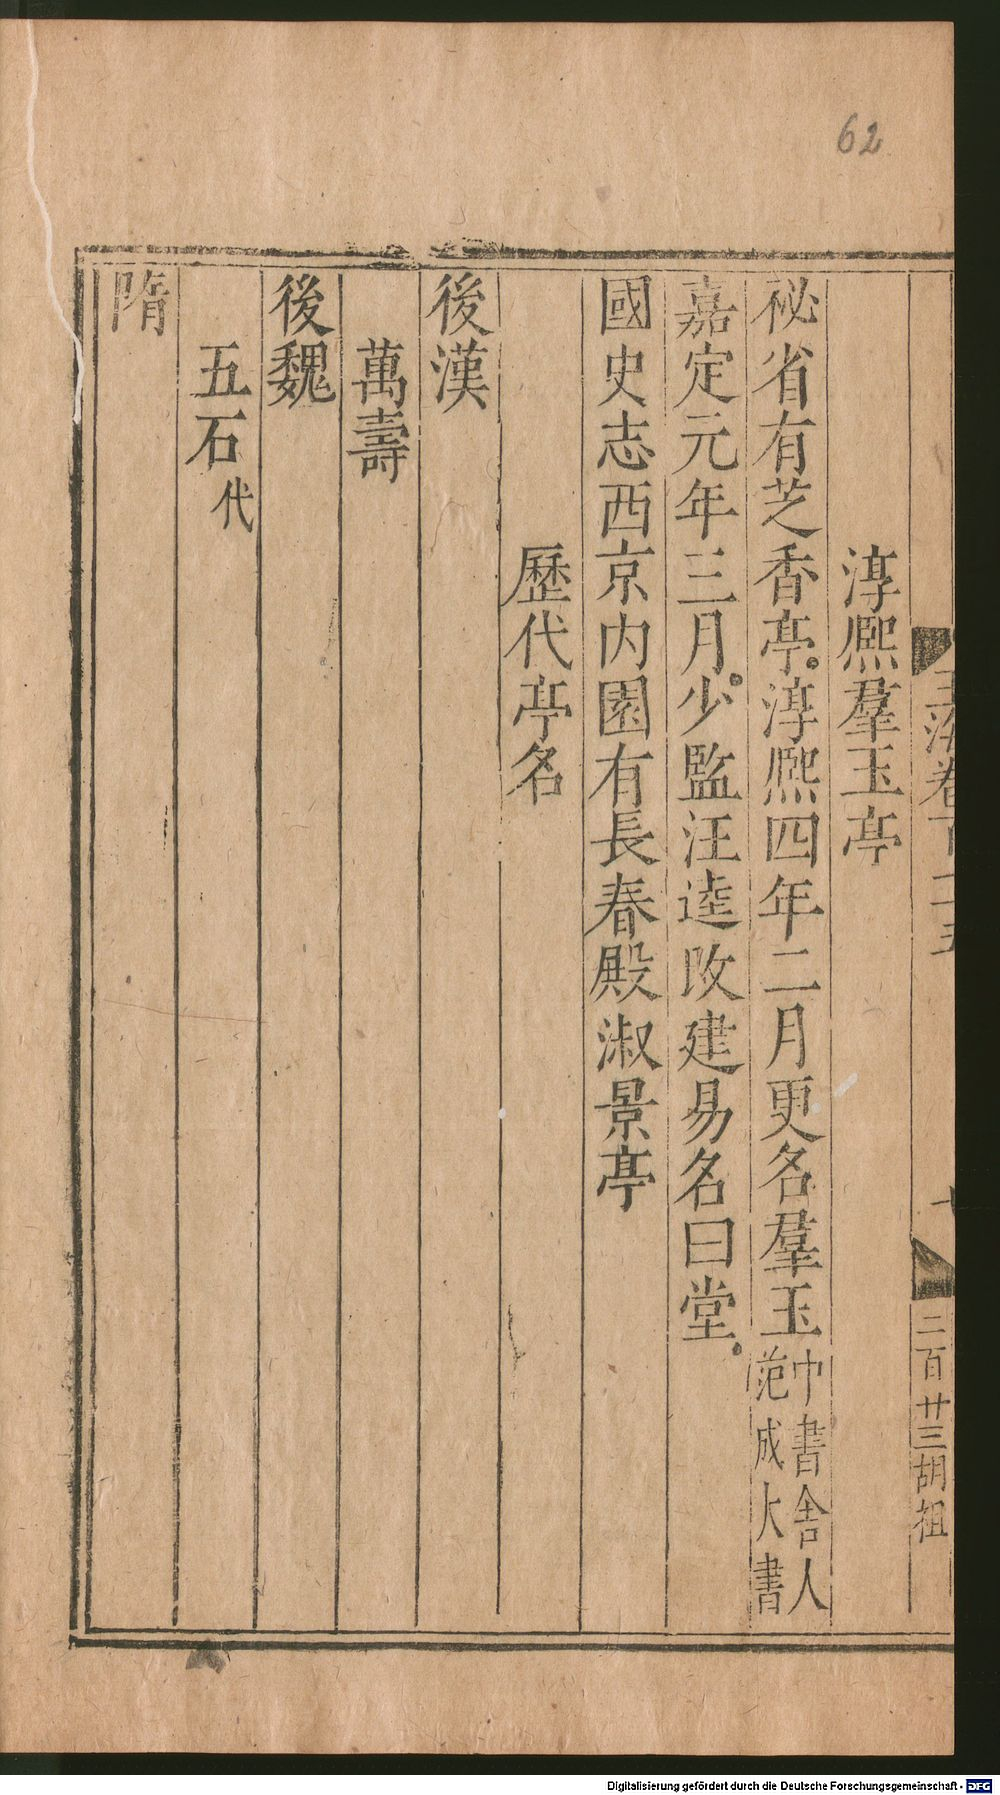 62
淳熈羣玉亭
祕省有芝香亭。淳熈四年二月更名羣玉中書舍人范成大書
嘉定元年三月。少監汪逵改建易名曰堂。
國史志西京内園有長春殿淑景亭
歷代亭名
後漢
萬壽
後魏
五石代
隋
二百廿三胡祖
Digitalisierung gefördert durch die Deutsche Forschungsgemeinschaft - DFG